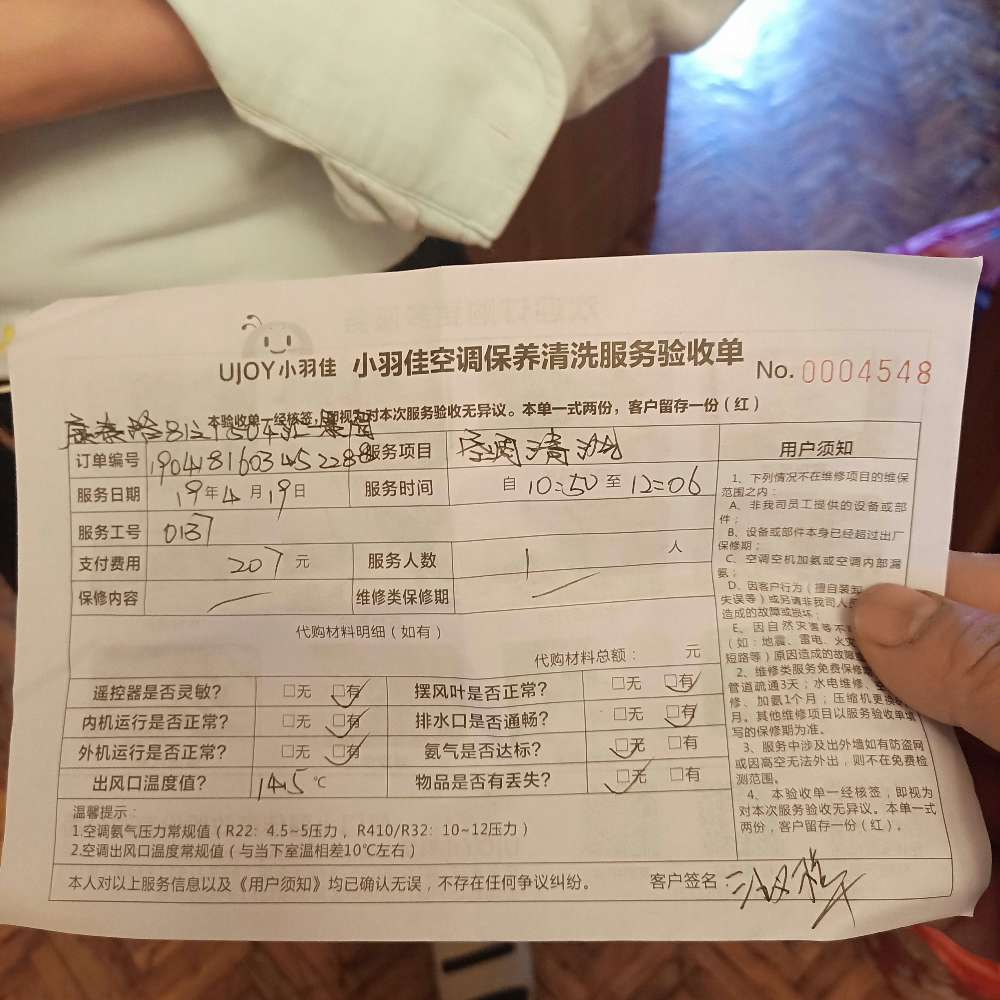 UJOY小羽佳 小羽佳空调保养清洗服务验收单 No. 0004548
本验收单一经核签，即视为对本次服务验收无异议。本单一式两份，客户留存一份（红）
订单编号 服务项目
服务日期 19年4月19日 服务时间 自 10:50 至 12:06
服务工号 0137
支付费用 207 元 服务人数 1 人
保修内容 维修类保修期
代购材料明细（如有）
代购材料总额： 元
遥控器是否灵敏？ □无 □有 摆风叶是否正常？ □无 □有
内机运行是否正常？ □无 □有 排水口是否通畅？ □无 □有
外机运行是否正常？ □无 □有 氨气是否达标？ □无 □有
出风口温度值？ 14.5 ℃ 物品是否有丢失？ □无 □有
温馨提示：
1.空调氨气压力常规值（R22：4.5~5压力，R410/R32：10~12压力）
2.空调出风口温度常规值（与当下室温相差10℃左右）
本人对以上服务信息以及《用户须知》均已确认无误，不存在任何争议纠纷。 客户签名：
用户须知
1、下列情况不在维修项目的维保
范围之内：
A、非我司员工提供的设备或部
件；
B、设备或部件本身已经超过出厂
保修期；
C、空调空机加氨或空调内部漏
氨；
D、因客户行为（擅自装卸
失误等）或另请非我司人员
造成的故障或损坏；
E、因自然灾害等不
（如：地震、雷电、火灾
短路等）原因造成的故障
2、维修类服务免费保修
管道疏通3天；水电维修、
修、加氨1个月；压缩机更换
月。其他维修项目以服务验收单填
写的保修期为准。
3、服务中涉及出外墙如有防盗网
或因高空无法外出，则不在免费检
测范围。
4、本验收单一经核签，即视为
对本次服务验收无异议。本单一式
两份，客户留存一份（红）。